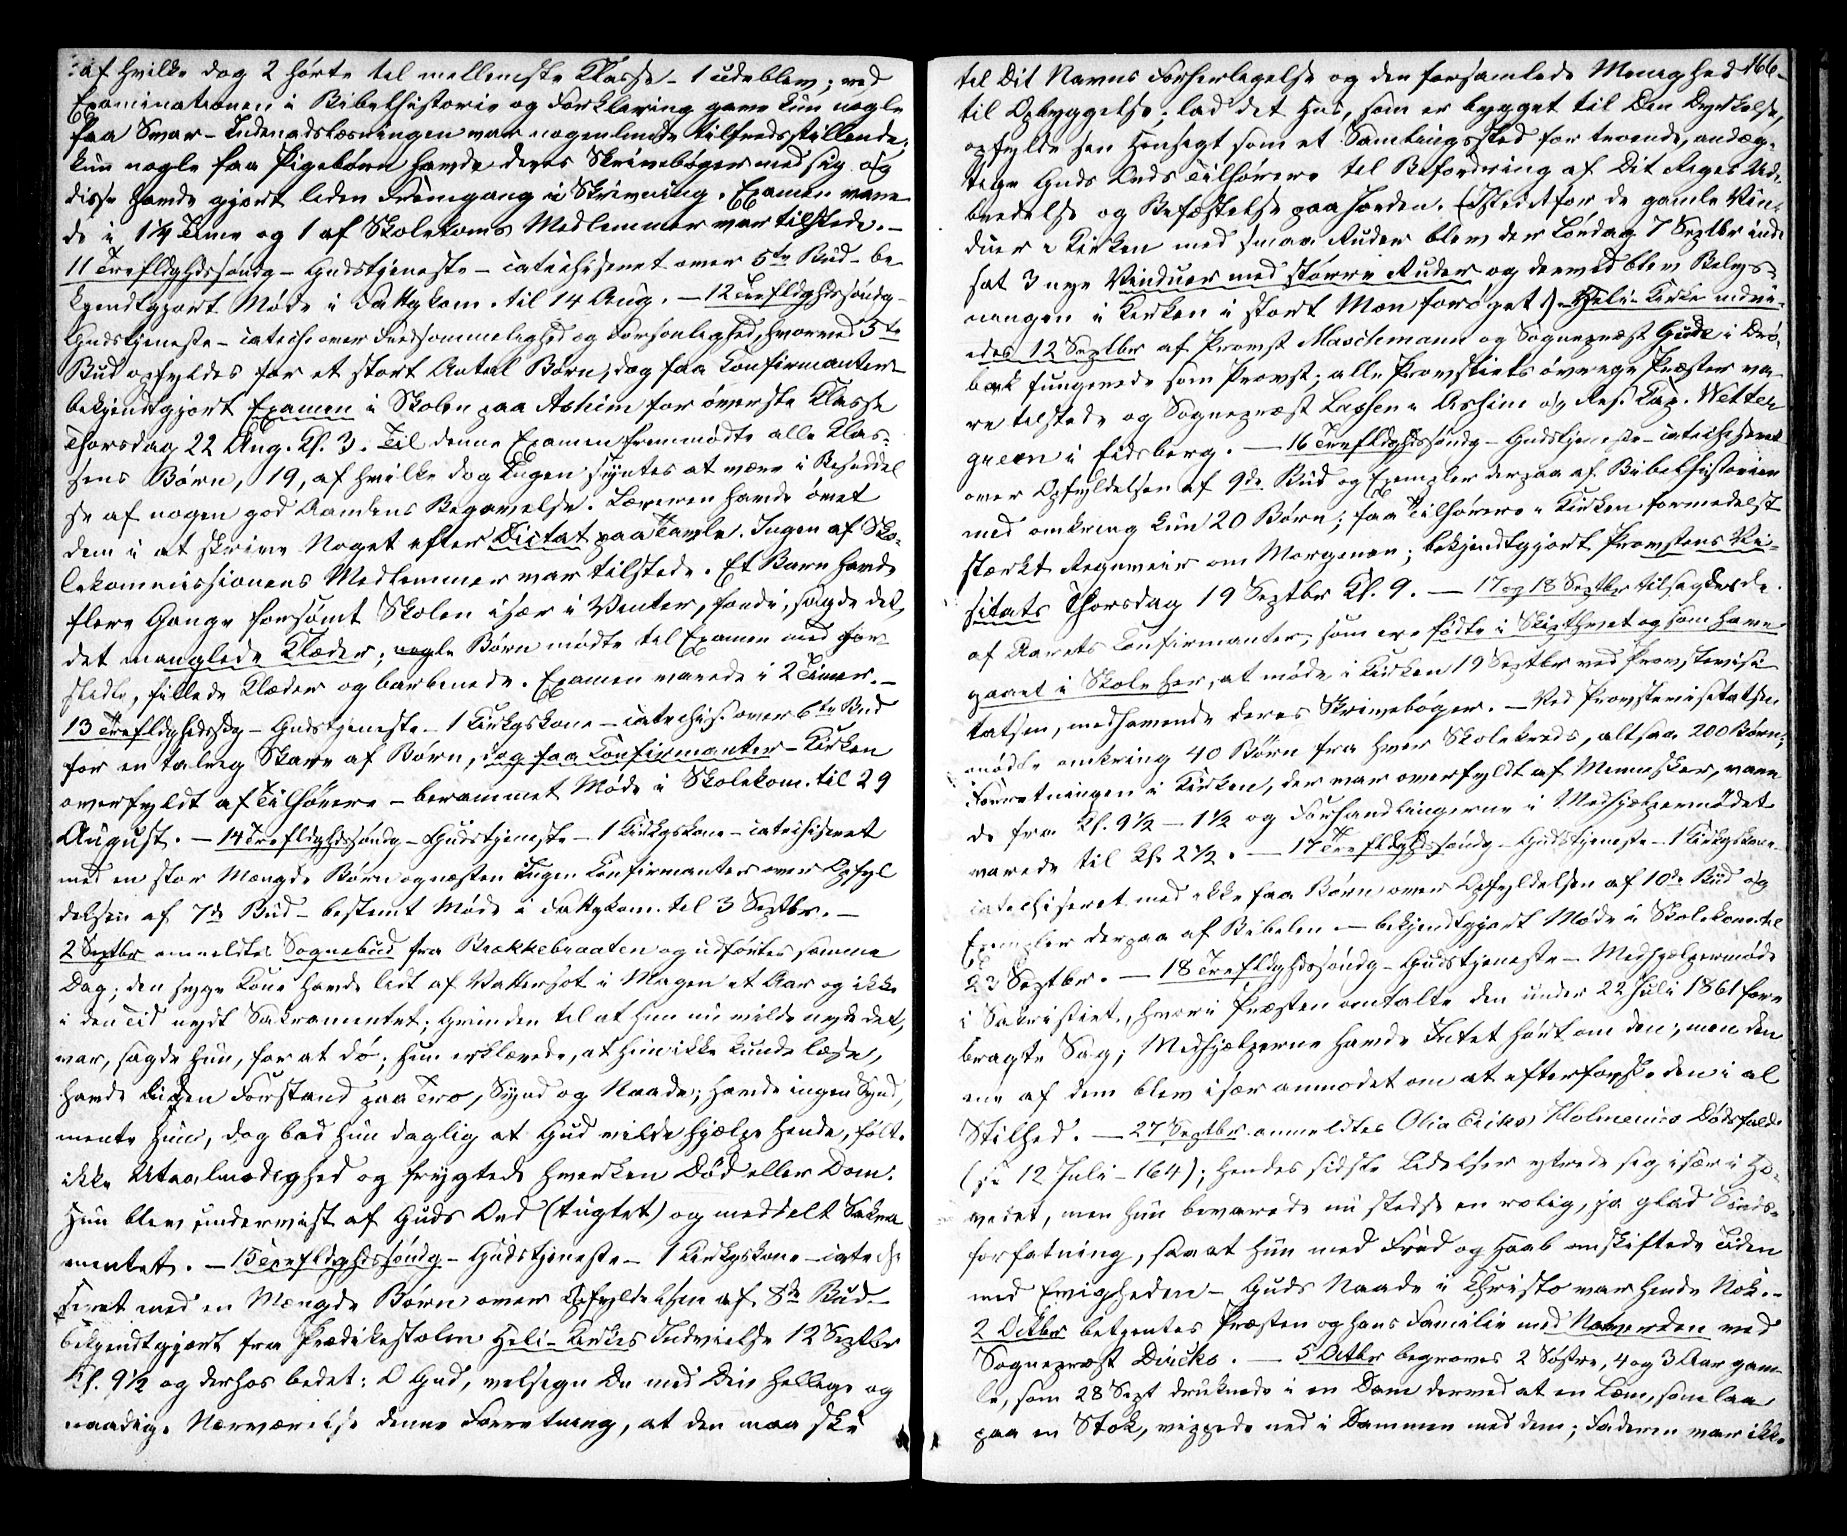 af hvilke dog 2 hørte til mellemste Klasse – 1 udeblev; ved
Examinationen i Bibelhistorie og Forklaring gave kun nogle
faa Svar – Indenadslæsningen var nogenlunde tilfredsstillende;
kun nogle faa Pigebørn havde deres Skrivebøger med sig og
disse havde gjort liden Fremgang i Skrivning. Examen vare
de i 1¼ Time og 1 af Skolekoms Medlemmer var tilstede. –
11 Trefldghdssøndg – Gudstjeneste – catechiseret over 5te Bud – be
kjendtgjort Møde i Fattgkom. til 14 Aug. – 12 Trefldghdssøndg –
Gudstjeneste – catech. over Fredsommelighed og Forsonlighed, hvorved 5te
Bud opfyldes for et stort Antal Børn, dog faa Confirmanter –
bekjendtgjort Examen i Skolen paa Askim for øverste Klasse
Thorsdag 22 Aug. Kl. 3. Til denne Examen fremmødte alle Klas-
sens Børn, 19, af hvilke dog Ingen syntes at være i Besiddel
se af nogen god Aandens Begavelse. Læreren havde øvet
dem i at skrive Noget efter Dictat paa Tavle. Ingen af Sko-
lekommissionens Medlemmer var tilstede. Et Barn havde
flere Gange forsømt Skolen især i Vinter, fordi, sagde det,
det manglede Klæder; nogle Børn mødte til Examen med
fillede Klæder og barbenede. Examen varede i 2 Timer. –
13 Trefldghedssdg – Gudstjeneste – 1 Kirkgskone – catechis. over 6te Bud
for en talrig Skare af Børn, dog faa Confirmanter – Kirken
overfyldt af Tilhørere – berammet Møde i Skolekom. til 29
August. – 14 Trefldghdssøndg – Gudstjeneste – 1 Kirkgskone – catechiseret
med en stor Mængde Børn og næsten Ingen Confirmanter over Opfyl
delsen af 7de Bud – bestemt Møde i Fattgkom. til 3 Septbr. –
2 Septbr anmeldtes Sognebud fra Brækkebraaten og udførtes samme
Dag; den syge Kone havde lidt af Vattersot i Maven et Aar og ikke
i den Tid nydt Sakramentet; Grunden til at hun nu vilde nyde det,
var, sagde hun, for at dø; hun erklærede, at hun ikke kunde læse,
havde liden Forstand paa Tro, Synd og Naade; havde ingen Synd,
mente hun, dog bad hun daglig at Gud vilde hjælpe hende, følte
ikke Utaalmodighed og frygtede hverken Død eller Dom.
Hun blev undervist af Guds Ord (tugtet) og meddelt Sakra
mentet. – 15 Trefldghdssøndg – Gudstjeneste – 1 Kirkgskone – catechi
seret med en Mængde Børn over Opfyldelsen af 8de Bud –
bekjendtgjort fra Prædikestolen Heli-Kirkes Indvielse 12 Septbr
Kl. 9½ og derhos bedet: O Gud, velsign Du med Din hellige og
naadige Nærværelse denne Forretning, at den maa ske
166
til Dit Navns Forherligelse og den forsamlede Menighed
til Opbyggelse; lad det Hus, som er bygget til Din Dyrkelse,
opfylde sin Hensigt som et Samlingssted for troende, andæg-
tige Guds Ords Tilhørere til Befordring af Dit Riges Ud-
bredelse og Befæstelse paa Jorden. (Istedetfor de gamle Vin-
duer i Kirken med smaa Ruder blev der Lørdag 7 Septbr ind
sat 3 nye Vinduer med større Ruder og derved blev Belys-
ningen i Kirken i stort Mon forøget). – Heli-Kirke indvi-
edes 12 Septbr af Provst Maschmann og Sognepræst Gude i Drø-
bak fungerede som Provst; alle Provstiets øvrige Præster va-
re tilstede og Sognepræst Lassen i Askim og Res. Kap. Wetter
green i Eidsberg. – 16 Trefldghdssøndg – Gudstjeneste – catechiseret
over Opfyldelsen af 9de Bud og Exempler derpaa af Bibelhistorien
med omkring kun 20 Børn; faa Tilhørere i Kirken formedelst
stærkt Regnveir om Morgenen; bekjendtgjort Provstens Vi-
sitats Thorsdag 19 Septbr Kl. 9. – 17 og 18 Septbr tilsagdes de
af Aarets Confirmanter, som ere fødte i Skipthvet og som have
gaaet i Skole her, at møde i Kirken 19 Septbr ved Provstevisi
tatsen, medhavende deres Skrivebøger. – Ved Provstevisitatsen
mødte omkring 40 Børn fra hver Skolekreds, altsaa 200 Børn;
Forretningen i Kirken, der var overfyldt af Mennesker, vare
de fra Kl. 9½ – 1½ og Forhandlingerne i Medhjælpermødet
varede til Kl. 2½. – 17 Trefldghdssøndg – Gudstjeneste – 1 Kirkgskone –
catechiseret med ikke faa Børn over Opfyldelsen af 10de Bud og
Exempler derpaa af Bibelen – bekjendtgjort Møde i Skolekom. til
23 Septbr. – 18 Trefldghdssøndg – Gudstjeneste – Medhjælpermøde
i Sakristiet, hvori Præsten omtalte den under 22 Juli 1861 fore
bragte Sag; Medhjælperne havde Intet hørt om den; men den
ene af dem blev især anmodet om at efterforske den i al
Stilhed. – 27 Septbr anmeldtes Olia Eriks. Holmenies Dødsfald
(se 12 Juli – 164); hendes sidste Lidelser ytrede sig især i Ho-
vedet, men hun bevarede nu stedse en rolig, ja glad Sinds-
forfatning, saa at hun med Fred og Haab ombyttede Tiden
med Evigheden – Guds Naade i Christo var hende Nok. –
2 Octbr betjentes Præsten og hans Familie med Nadverden ved
Sognepræst Diricks. – 5 Octbr begroves 2 Søstre, 4 og 3 Aar gam-
le, som 28 Sept druknede i en Dam derved at en Lem, som laa
paa en Stok, vippede ned i Dammen med dem; Faderen var ikke